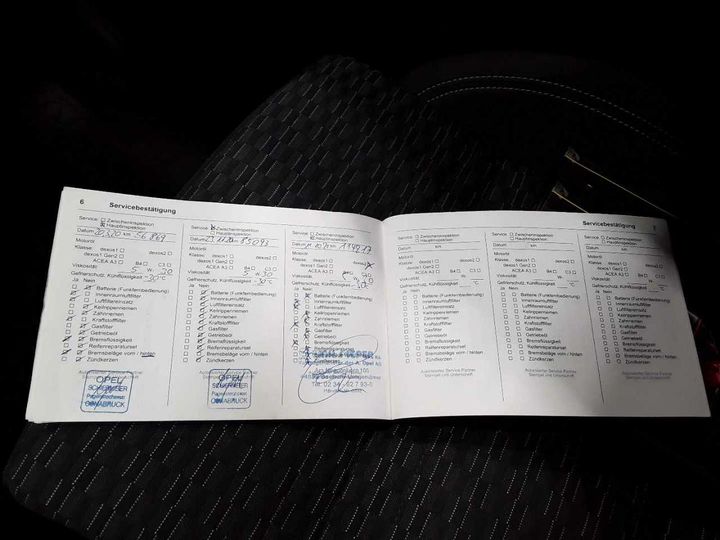 6 Servicebestätigung
Service: Zwischeninspektion
Hauptinspektion
Datum km 56869
Motoröl
Klasse: dexos1 dexos2
dexos1 Gen2
ACEA A3 B4 C3
Viskosität 5 W- 30
Gefrierschutz, Kühlflüssigkeit -30 °C
Ja Nein
Batterie (Funkfernbedienung)
Innenraumluftfilter
Luftfiltereinsatz
Keilrippenriemen
Zahnriemen
Kraftstofffilter
Gasfilter
Getriebeöl
Bremsflüssigkeit
Reifenreparaturset
Bremsbeläge vorn / hinten
Zündkerzen
Autorisierter Service Partner
Stempel und Unterschrift
OPEL
OSNABRÜCK
Service: Zwischeninspektion
Hauptinspektion
Datum km 85093
Motoröl
Klasse: dexos1 dexos2
dexos1 Gen2
ACEA A3 B4 C3
Viskosität 5 W- 30
Gefrierschutz, Kühlflüssigkeit -30 °C
Ja Nein
Batterie (Funkfernbedienung)
Innenraumluftfilter
Luftfiltereinsatz
Keilrippenriemen
Zahnriemen
Kraftstofffilter
Gasfilter
Getriebeöl
Bremsflüssigkeit
Reifenreparaturset
Bremsbeläge vorn / hinten
Zündkerzen
Autorisierter Service Partner
Stempel und Unterschrift
OPEL
OSNABRÜCK
Service: Zwischeninspektion
Hauptinspektion
Datum km
Motoröl
Klasse: dexos1 dexos2
dexos1 Gen2
ACEA A3 B4 C3
Viskosität
Gefrierschutz, Kühlflüssigkeit
Ja Nein
Batterie (Funkfernbedienung)
Innenraumluftfilter
Luftfiltereinsatz
Keilrippenriemen
Zahnriemen
Kraftstofffilter
Gasfilter
Getriebeöl
Bremsflüssigkeit
Servicebestätigung 7
Service: Zwischeninspektion
Hauptinspektion
Datum km
Motoröl
Klasse: dexos1 dexos2
dexos1 Gen2
ACEA A3 B4 C3
Viskosität W-
Gefrierschutz, Kühlflüssigkeit °C
Ja Nein
Batterie (Funkfernbedienung)
Innenraumluftfilter
Luftfiltereinsatz
Keilrippenriemen
Zahnriemen
Kraftstofffilter
Gasfilter
Getriebeöl
Bremsflüssigkeit
Reifenreparaturset
Bremsbeläge vorn / hinten
Zündkerzen
Autorisierter Service Partner
Stempel und Unterschrift
Service: Zwischeninspektion
Hauptinspektion
Datum km
Motoröl
Klasse: dexos1 dexos2
dexos1 Gen2
ACEA A3 B4 C3
Viskosität W-
Gefrierschutz, Kühlflüssigkeit °C
Ja Nein
Batterie (Funkfernbedienung)
Innenraumluftfilter
Luftfiltereinsatz
Keilrippenriemen
Zahnriemen
Kraftstofffilter
Gasfilter
Getriebeöl
Bremsflüssigkeit
Reifenreparaturset
Bremsbeläge vorn / hinten
Zündkerzen
Autorisierter Service Partner
Stempel und Unterschrift
Service: Zwischeninspektion
Hauptinspektion
Datum km
Motoröl
Klasse: dexos1 dexos2
dexos1 Gen2
ACEA A3 B4 C3
Viskosität W-
Gefrierschutz, Kühlflüssigkeit °C
Ja Nein
Batterie (Funkfernbedienung)
Innenraumluftfilter
Luftfiltereinsatz
Keilrippenriemen
Zahnriemen
Kraftstofffilter
Gasfilter
Getriebeöl
Bremsflüssigkeit
Reifenreparaturset
Bremsbeläge vorn / hinten
Zündkerzen
Autorisierter Service Partner
Stempel und Unterschrift